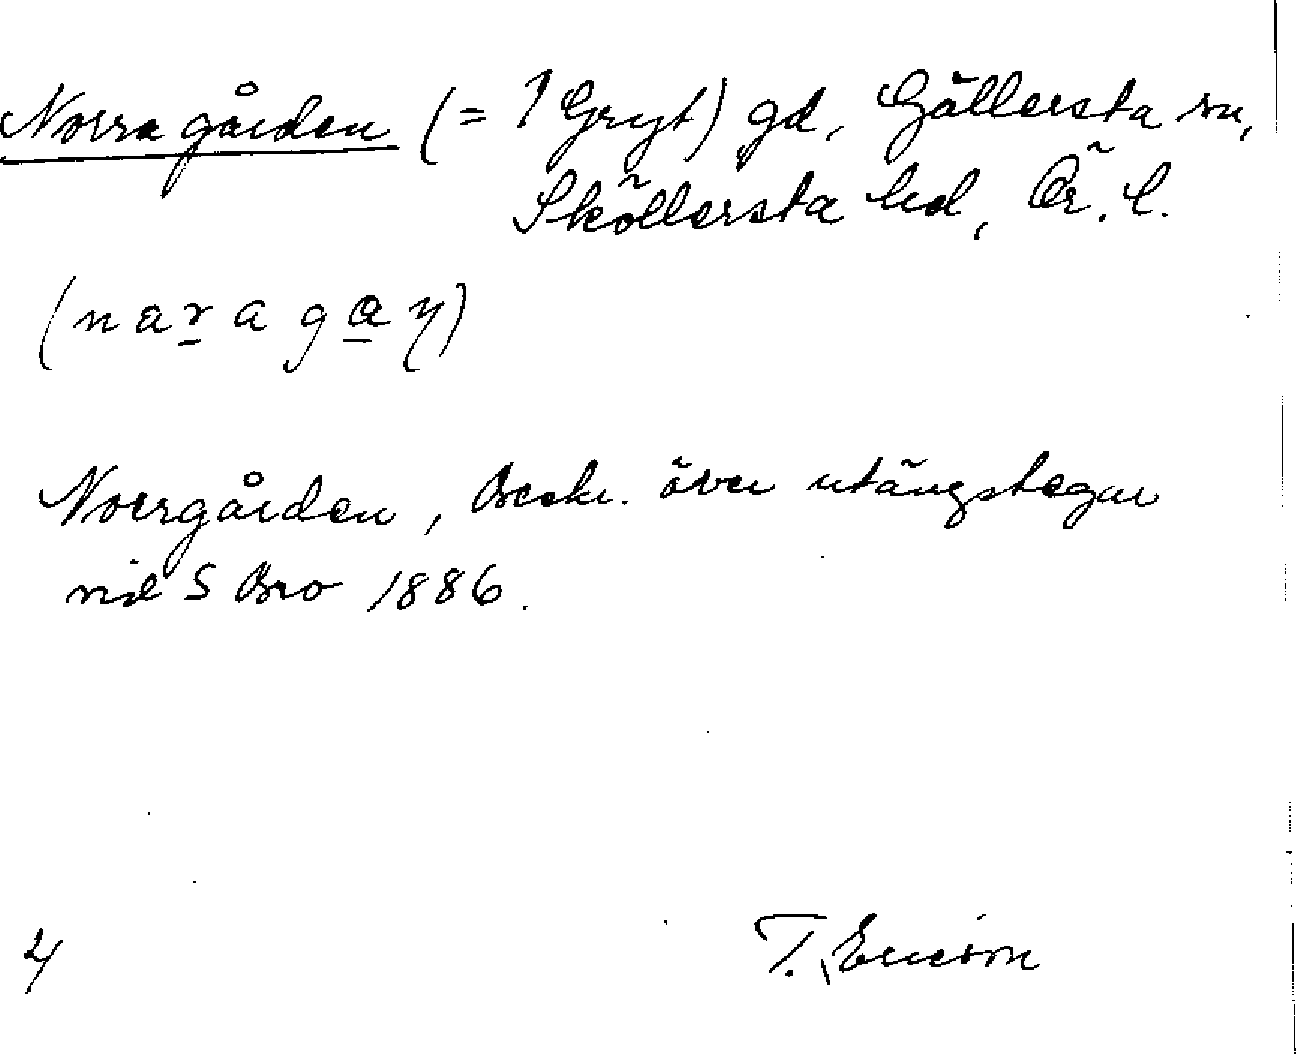 Norra gården (= 1 Gryt) gd, Gällersta sn,
Sköllersta hd, Ör. l.
(n a r a g a η)
Norrgården, Beskr. över utängstegar
vid S Bro 1886.
4
T. Ericson